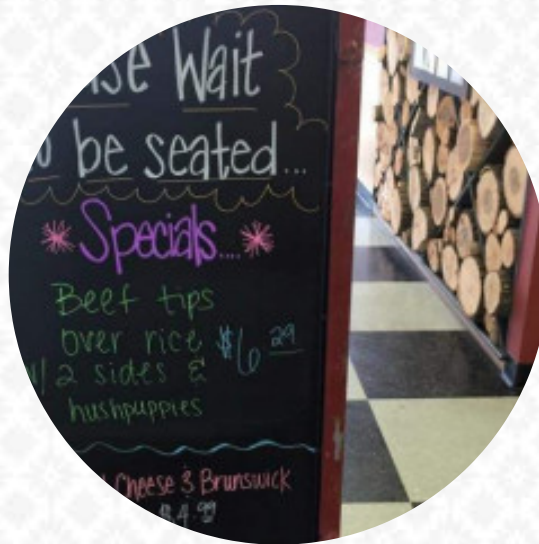 Wait
be seated...
Specials....
Beef tips
over rice $6 29
w/ 2 sides &
hushpuppies
Cheese & Brunswick
$4.99